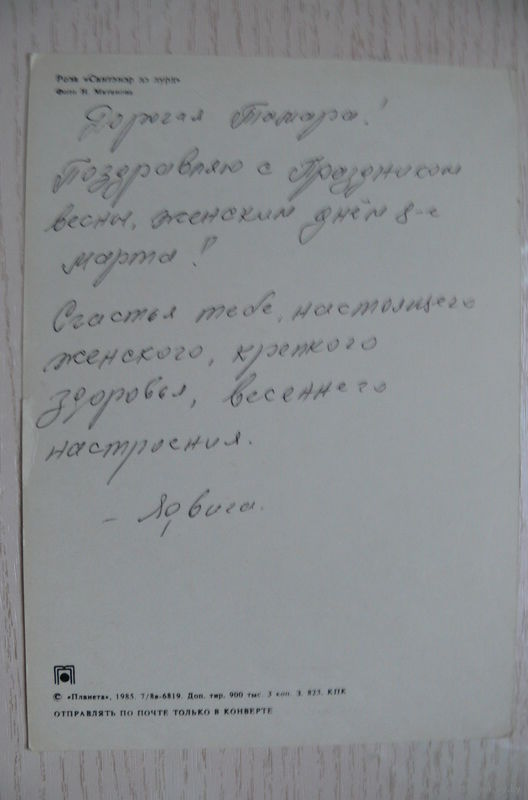 Роза «Сентэнэр до лурд»
Фото
Дорогая Тамара!
Поздравляю с Праздником
весны, женским днём 8-е
марта!
Счастья тебе, настоящего
женского, крепкого
здоровья, весеннего
настроения.
- Ядвига.
© «Планета», 1985. 7/8в-6819. Доп. тир. 900 тыс. 3 коп. З. 823. КПК
ОТПРАВЛЯТЬ ПО ПОЧТЕ ТОЛЬКО В КОНВЕРТЕ